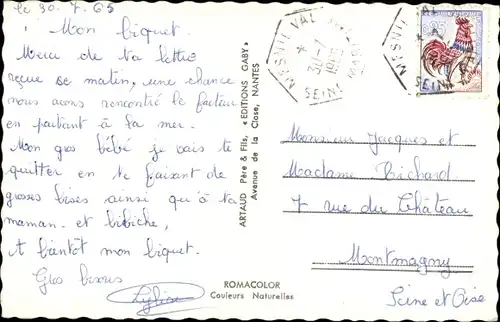 le 30.7.65
Mon biquet.
Merci de ta lettre
reçue se matin, une chance
nous avons rencontré le facteur
en partant à la mer.
Mon gros bébé je vais te
quitter en te faisant de
grosses bises ainsi qu'à ta
maman. et bibiche,
A bientôt mon biquet.
Gros bisous
ARTAUD Père & Fils, « EDITIONS GABY »
Avenue de la Close, NANTES
ROMACOLOR
Couleurs Naturelles
MESNIL VAL
30-7
1965
SEINE
MESNIL VAL
SEINE
Monsieur Jacques et
Madame Richard
7 rue du Château
Montmagny
Seine et Oise